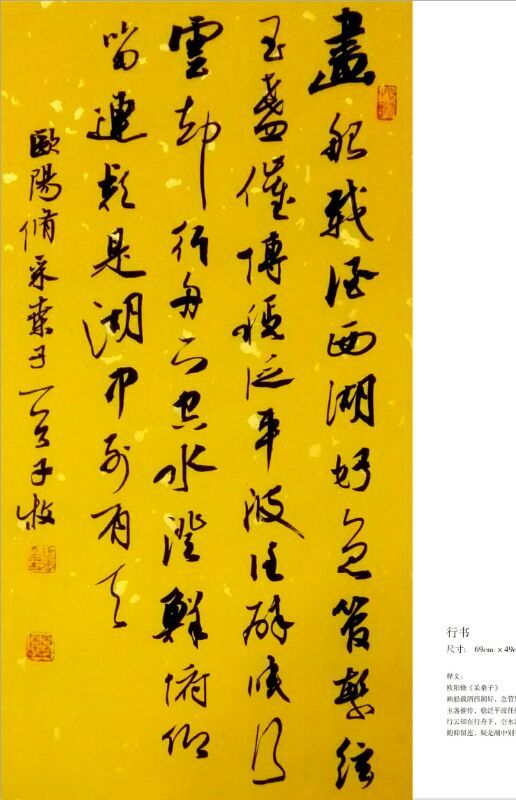 畫船載酒西湖好急管繁絃
玉盞催傳穩泛平波任醉眠行
雲却行舟下空水澄鮮俯仰
留連疑是湖中別有天
歐陽脩采桑子
行书
尺寸: 69cm ×49c
释文:
欧阳修《采桑子》
画船载酒西湖好,急管
玉盏催传,稳泛平波任
行云却在行舟下,空水
俯仰留连,疑是湖中别